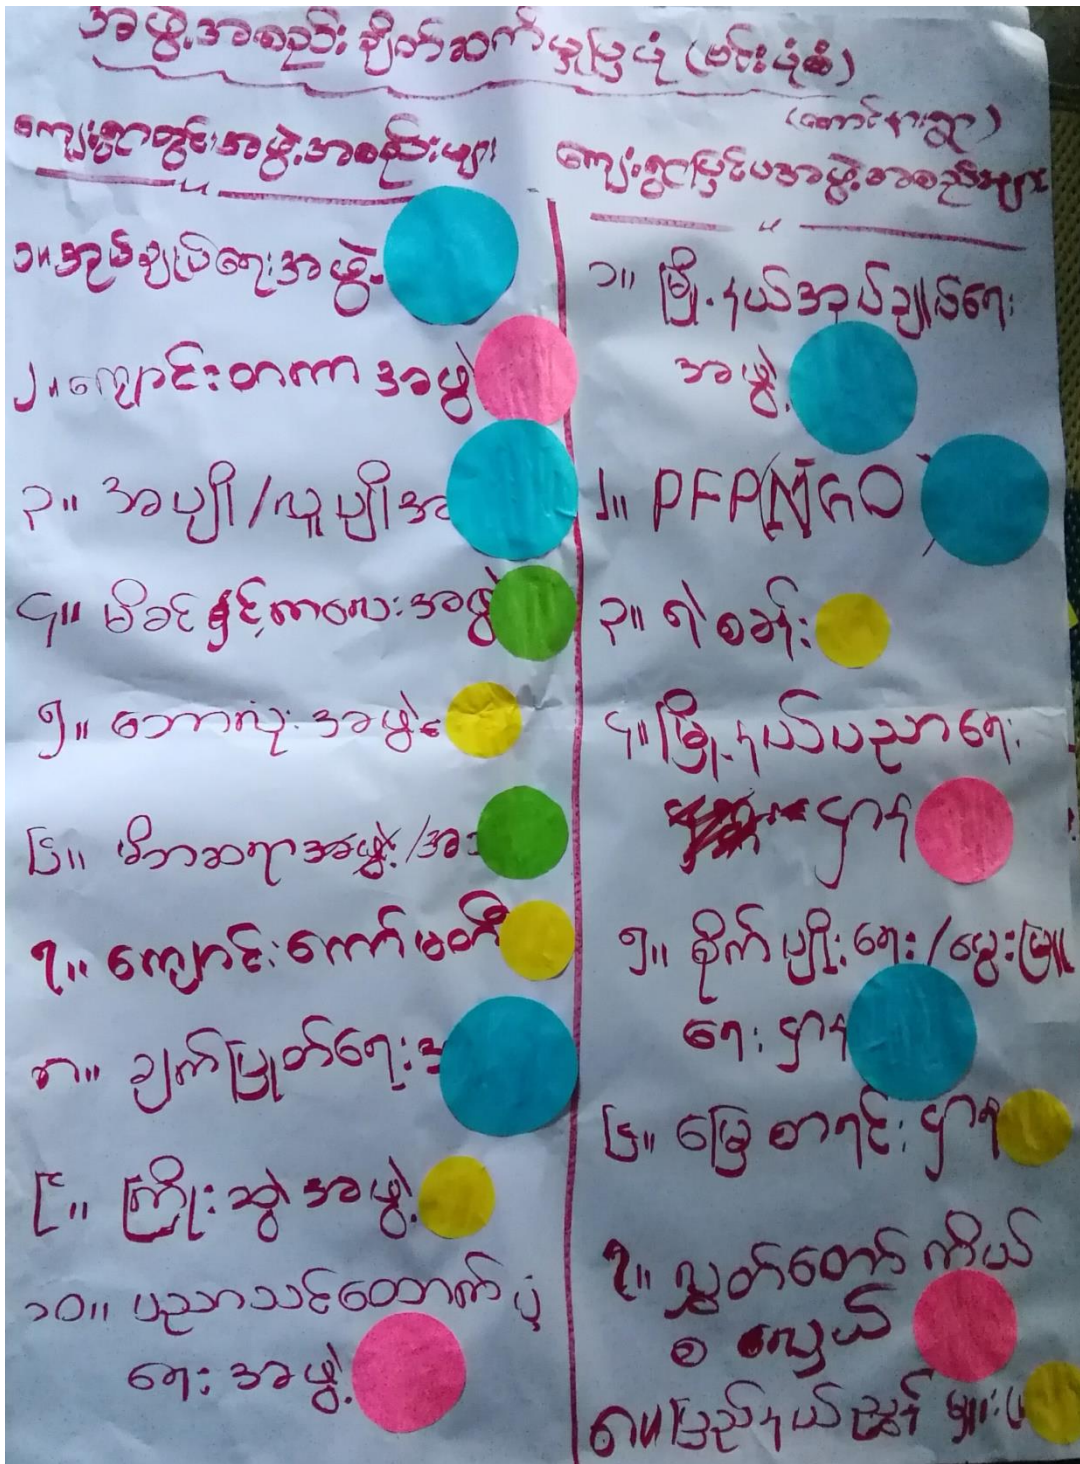 အဖွဲ့အစည်း ချိတ်ဆက်မှုပြပုံ (ဗင်းပုံစံ)
ကျေးရွာတွင်းအဖွဲ့အစည်းများ
၁။ အုပ်ချုပ်ရေးအဖွဲ့
၂။ ကျောင်းတကာ အဖွဲ့
၃။ အပျို/လူပျိုအ
၄။ မိခင်နှင့်ကလေးအဖွဲ့
၅။ ဘောလုံးအဖွဲ့
၆။ မိဘဆရာအဖွဲ့/အသ
၇။ ကျောင်းကော်မတီ
၈။ ချက်ပြုတ်ရေးအ
၉။ ကြိုးဆွဲအဖွဲ့
၁၀။ ပညာသင်ထောက်ပံ့
ရေးအဖွဲ့
ကျေးရွာပြင်ပအဖွဲ့အစည်းများ
၁။ မြို့နယ်အုပ်ချုပ်ရေး
အဖွဲ့
၂။ PFP(NGO
၃။ ရဲစခန်း
၄။ မြို့နယ်ပညာရေး
ဌာန
၅။ စိုက်ပျိုးရေး/မွေးမြူ
ရေးဌာန
၆။ မြေစာရင်းဌာန
၇။ လွှတ်တော်ကိုယ်
စားလှယ်
၈။ ပြည်နယ်